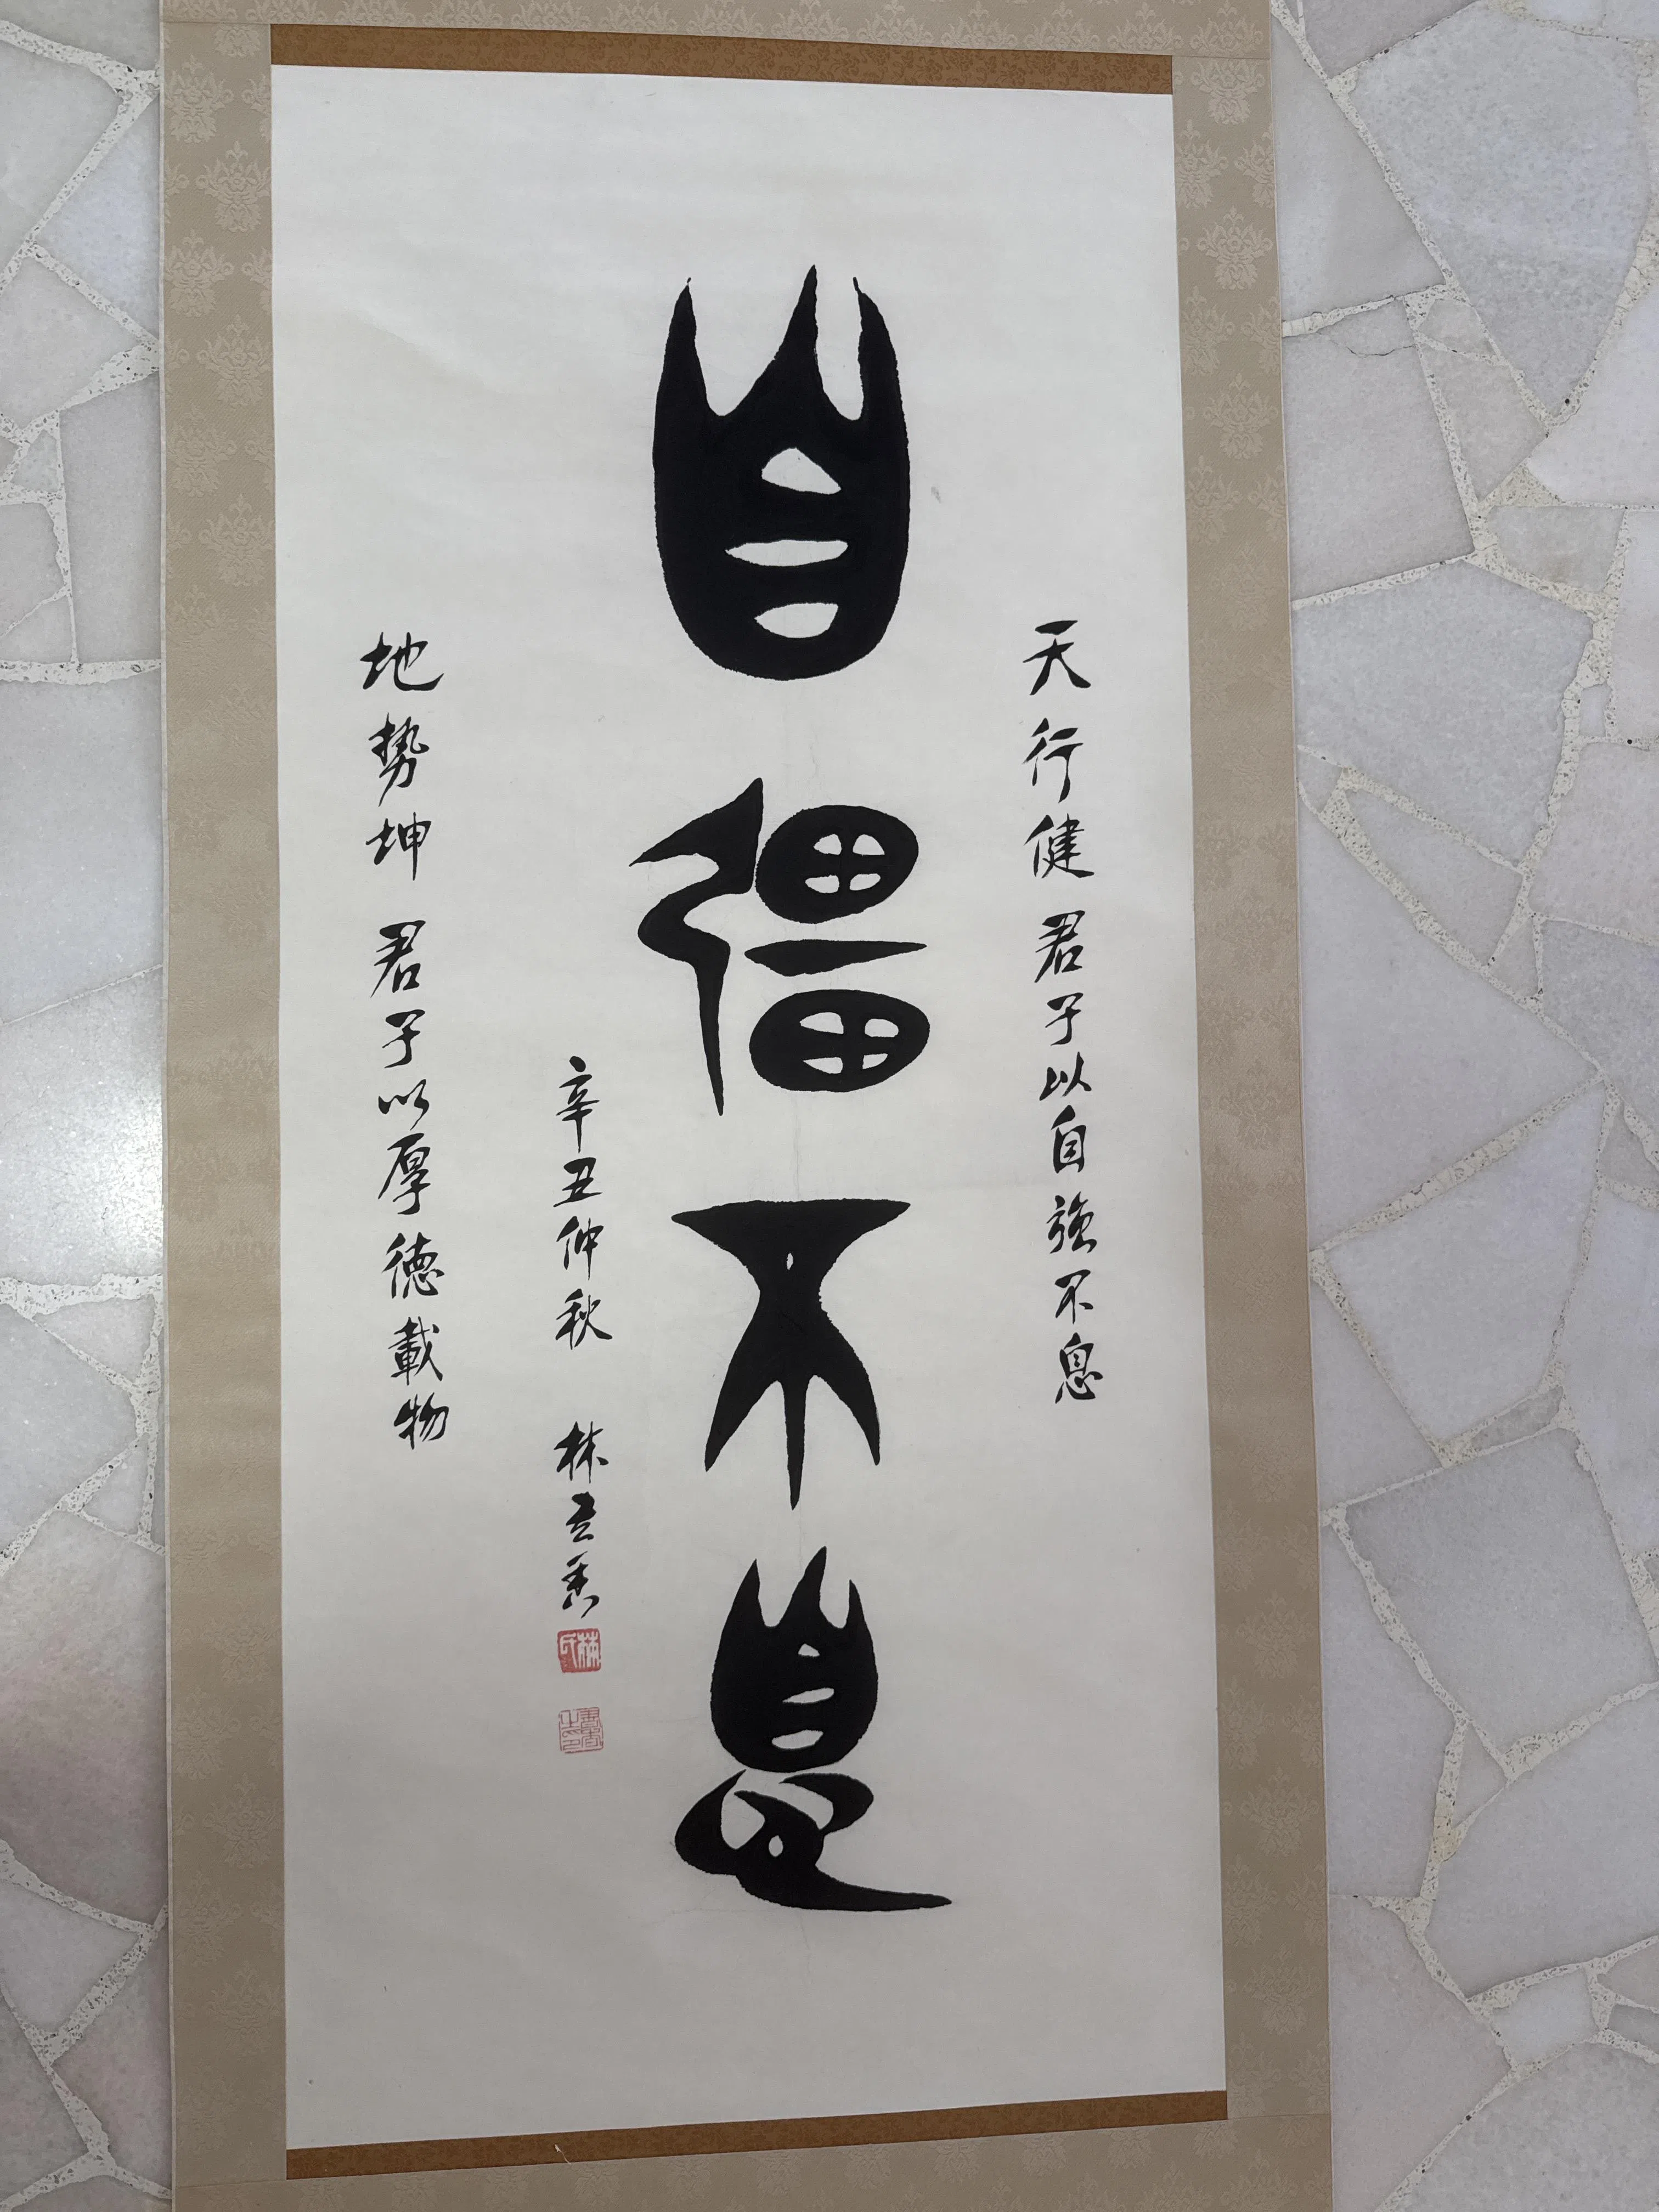 天行健 君子以自強不息
自彊不息
辛丑仲秋 林
地势坤 君子以厚德載物
林氏